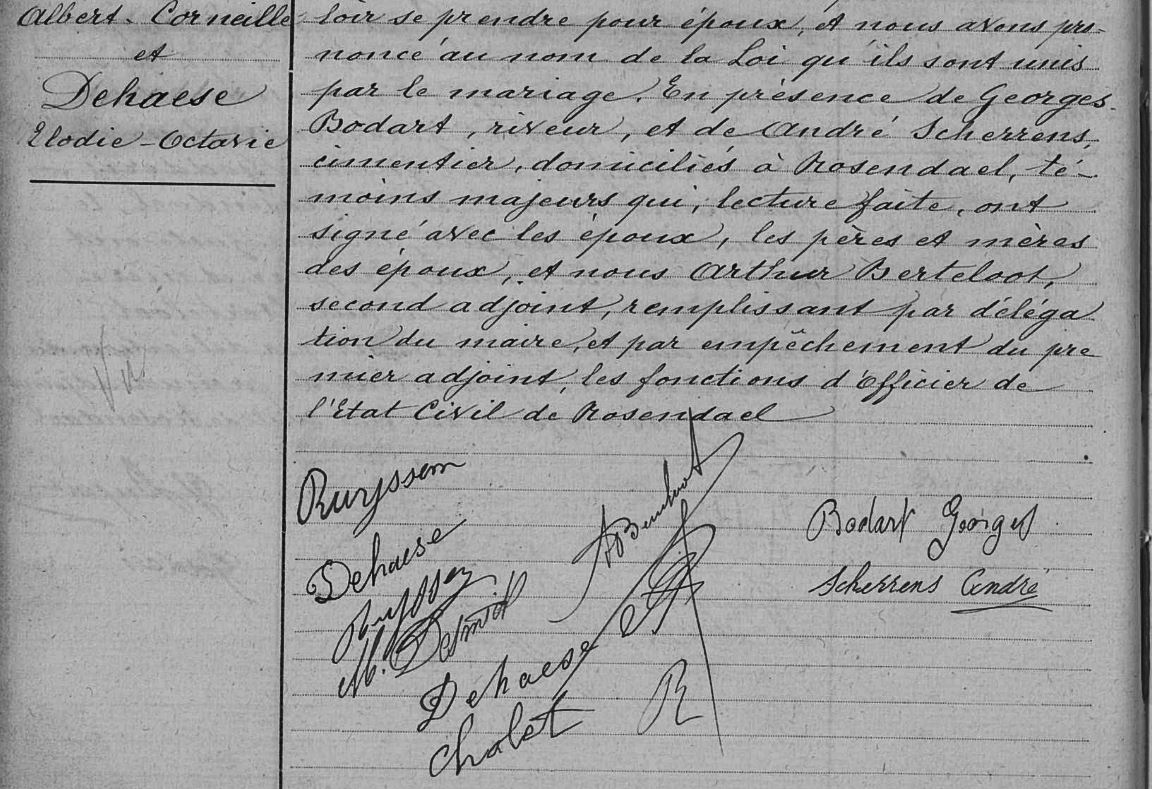 Albert-Corneille
et
Dehaese
Elodie-Octavie
loir se prendre pour époux, et nous avons pro-
noncé au nom de la Loi qu'ils sont unis
par le mariage. En présence de Georges
Bodart, riveur, et de André Scherrens,
cimentier, domiciliés à Rosendael, té-
moins majeurs qui, lecture faite, ont
signé avec les époux, les pères et mères
des époux, et nous Arthur Berteloot,
second adjoint, remplissant par déléga
tion du maire, et par empêchement du pre
mier adjoint, les fonctions d'Officier de
l'Etat Civil de Rosendael
Ruyssen
Dehaese
Ruyssen
M. Desmidt
Dehaese
Cholet
Bodart Georges
Scherrens André